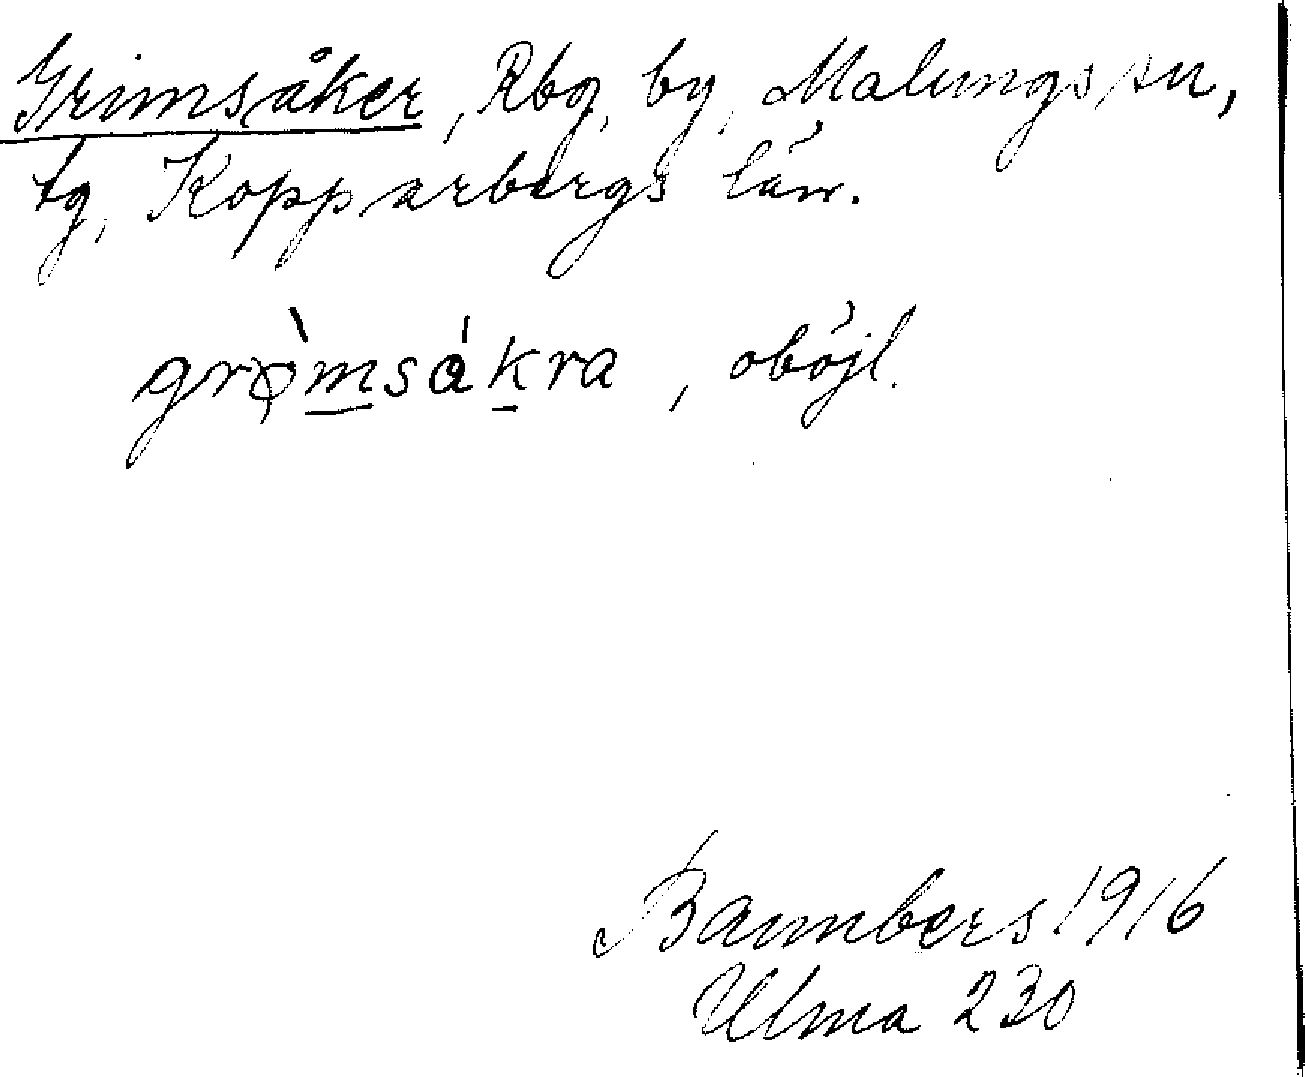 Grimsåker, Rbg, by, Malungs sn,
tg, Kopparbergs län.
grǫ̀msákra, oböjl.
Baumbers 1916
Ulma 230